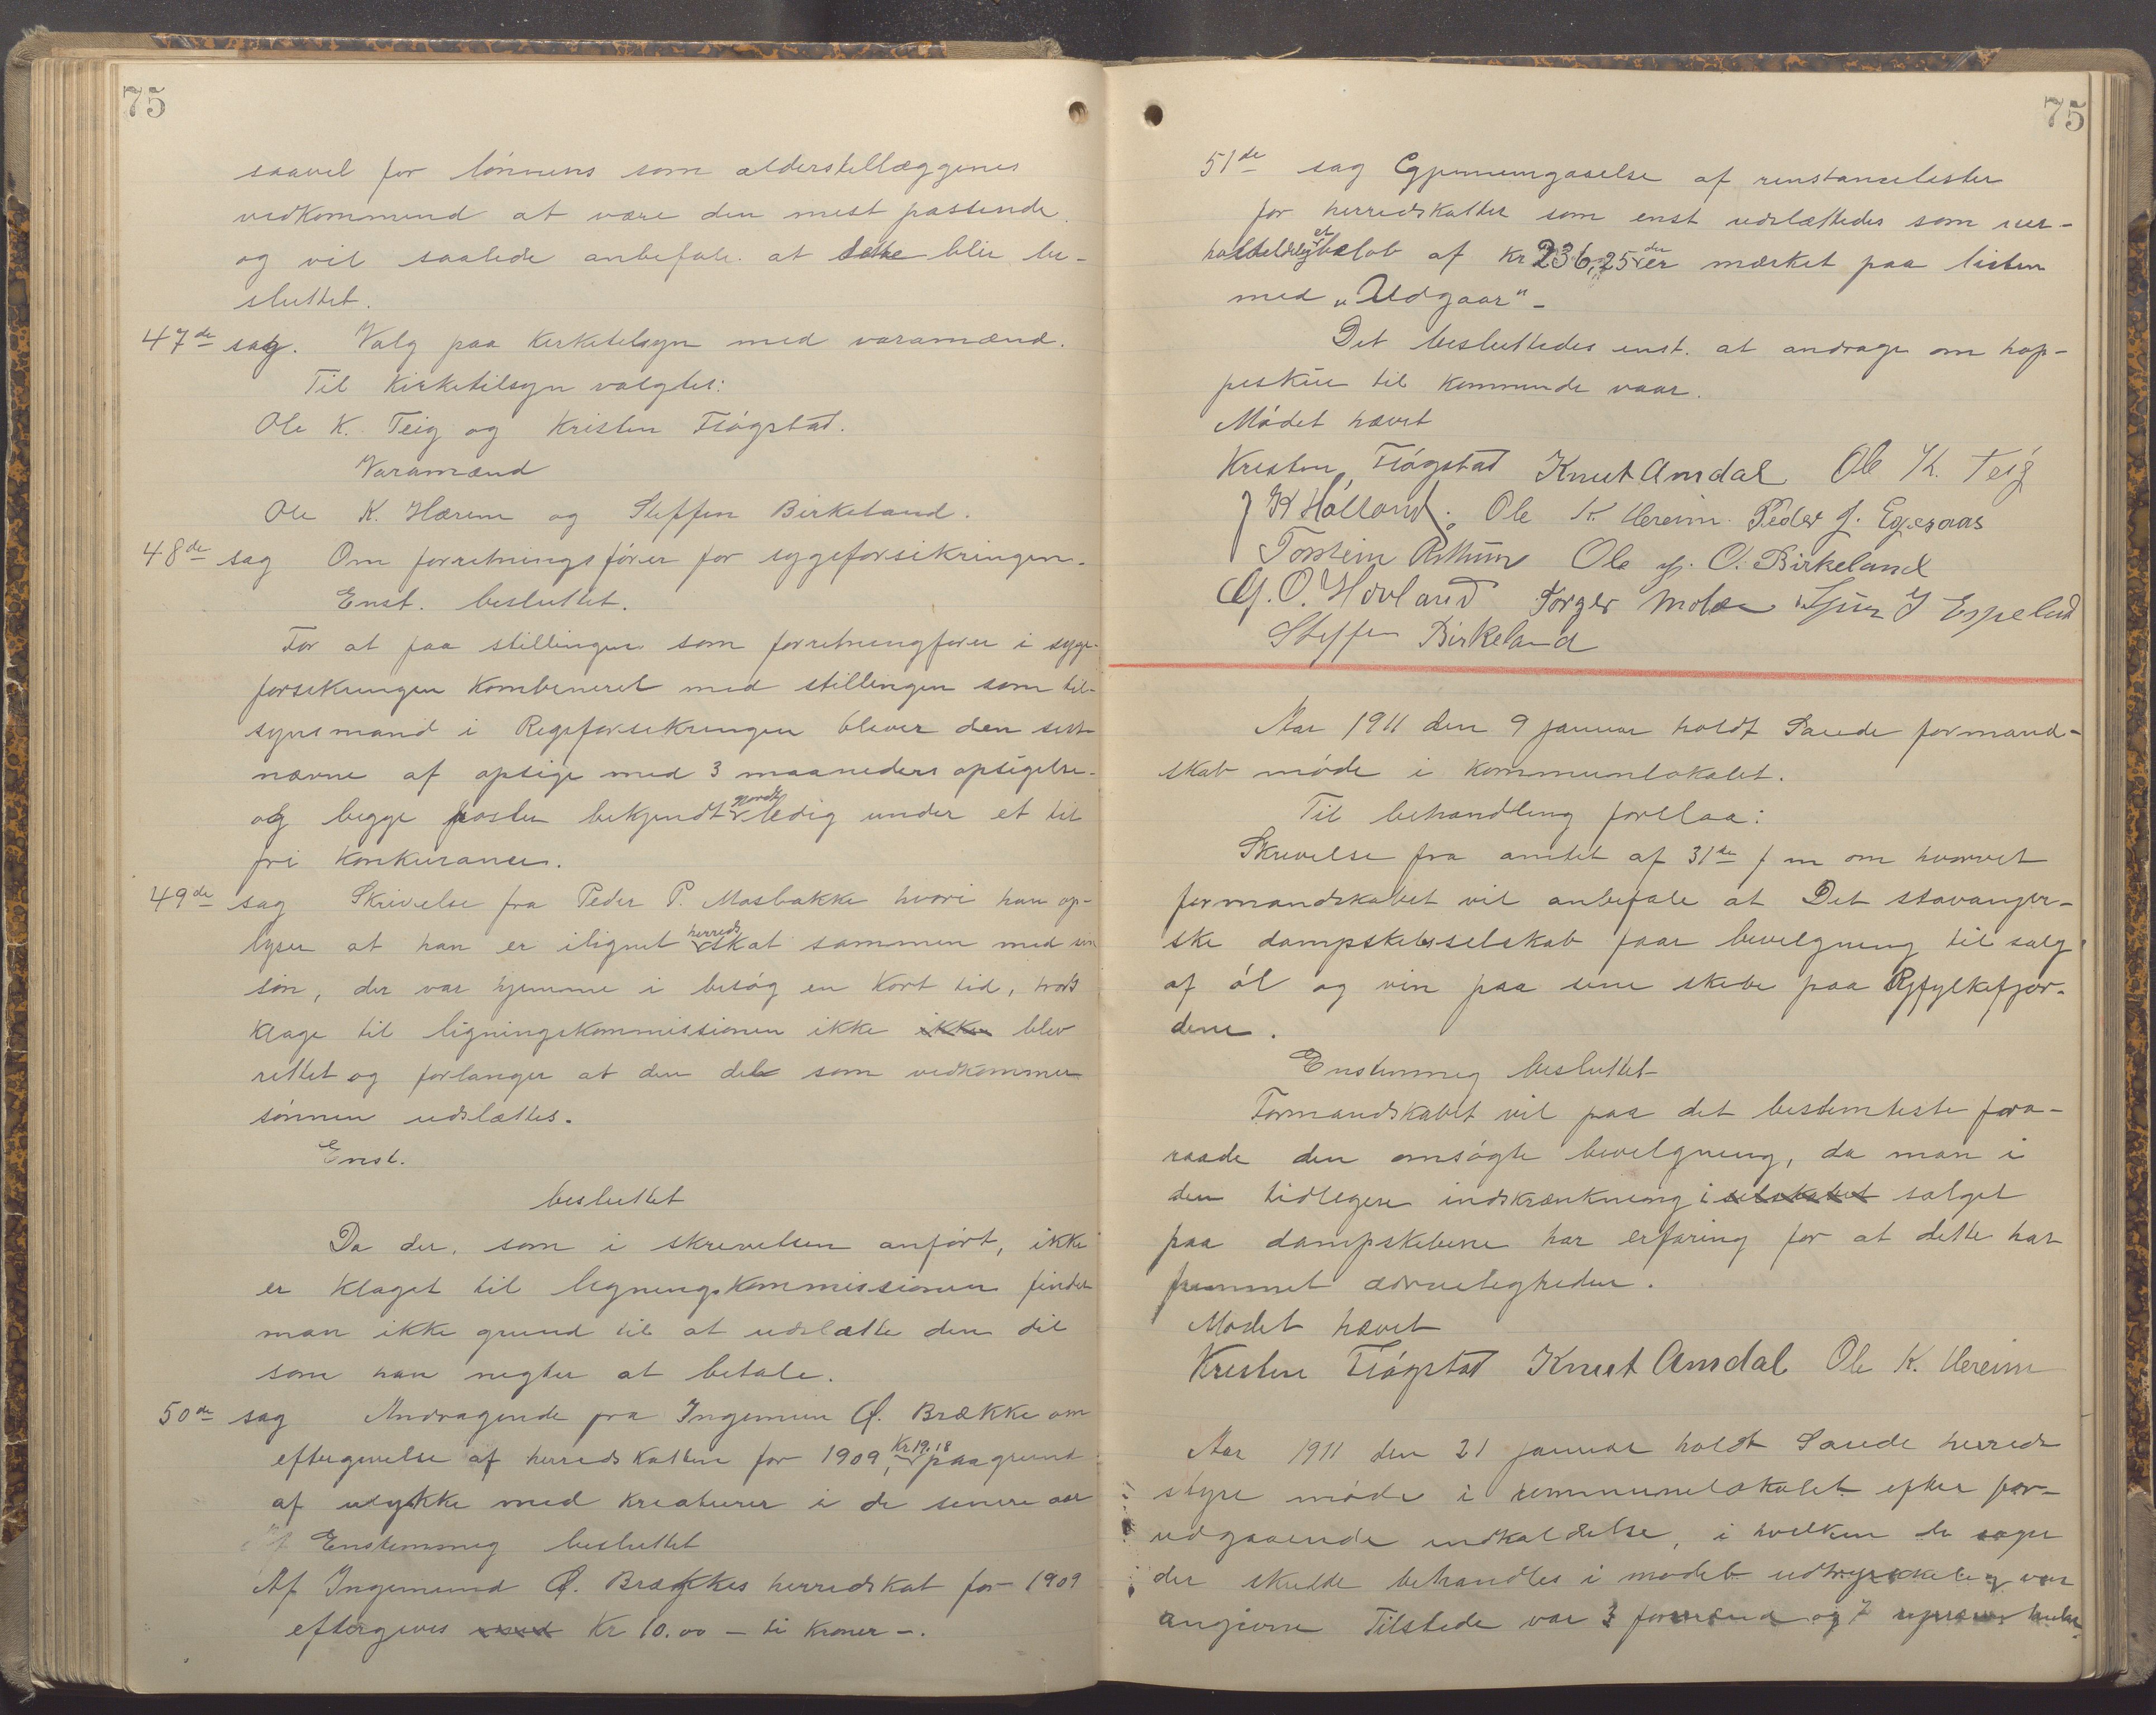 75
saavel for lönnens som alderstillæggenes
vedkommend at være den mest passende.
og vil saalede anbefale at dette blir be-
sluttet.
47de sag. Valg paa Kirketilsyn med varamænd.
Til Kirketilsyn valgtes:
Ole K. Teig og Kristen Fløgstad.
Varamænd
Ole K. Hærem og Steffen Birkeland.
48de sag Om forretningsfører for sygeforsikringen.
Enst. besluttet.
For at faa stillingen som forretningfører i syge-
forsikringen Kombineret med stillingen som til-
synsmand i Rigsforsikringen bliver den sist-
nævne af opsige med 3 maaneders opsigelse.
og begge poster bekjendt gjordt ledig under et til
fri Konkurance.
49de sag Skrivelse fra Peder P. Mosbakke hvori han op-
lyser at han er ilignet herredsskat sammen med sin
sön, der var hjemme i besøg en Kort tid, trods
Klage til ligningskommissionen ikke ikke blev
rettet og forlanger at den del som vedkommer
sönnen udslættes.
Enst.
besluttet
Da der, som i skrivelsen anfört, ikke
er Klaget til ligningsKommissionen finder
man ikke grund til at udslætte den del
som han negter at betale.
50de sag Andragende fra Ingemun Q. Brække om
eftergivelse af herredskatten for 1909, Kr 19.18 paagrund
af ulykke med Kreaturer i de senere aar
Enstemmig besluttet
Af Ingemund Q. Brækkes herredskat for 1909
eftergives med Kr 10.00 – ti Kroner –.
75
51de sag Gjennemgaaelse af restancelister
for herredskatter som enst udslættedes som uer-
holdelig et beløb af Kr 236,25 der er mærket paa listen
med „Udgaar" –
Det besluttedes enst. at andrage om hop-
peskue til Kommende vaar.
Mödet hævet
Kristen Fløgstad Knut Amdal Ole K. Teig
J K Hålland. Ole K. Hereim. Peder J. Eggesaas
Torstein Ole J. O. Birkeland
G. O. Hovland Torger Mola J Espeland
Steffen Birkeland
Aar 1911 den 9 januar holdt Saude formand-
skab møde i Kommunelokalet.
Til behandling forelaa:
Skrivelse fra amtet af 31te f m om hvorvet
formandskabet vil anbefale at Det stavanger-
ske dampskibsselskab faar bevilgning til salg
af öl og vin paa sine skibe paa Ryfylkefjor-
dene.
Enstemmig besluttet
Formandskabet vil paa det bestemteste fra-
raade den omsögte bevilgning, da man i
den tidligere indskrænkning i selskabet salget
paa dampskibene har erfaring for at dette har
fremmet ædrueligheden.
Mødet hævet
Kristen Fløgstad Knut Amdal Ole K. Hereim
Aar 1911 den 21 januar holdt Saude herreds
styre møde i Kommunelokalet efter for-
udgaaende indkaldelse, i hvilken de sager
der skulde behandles i mødet udtrykkelig var
angivne Tilstede var 3 formænd og 7